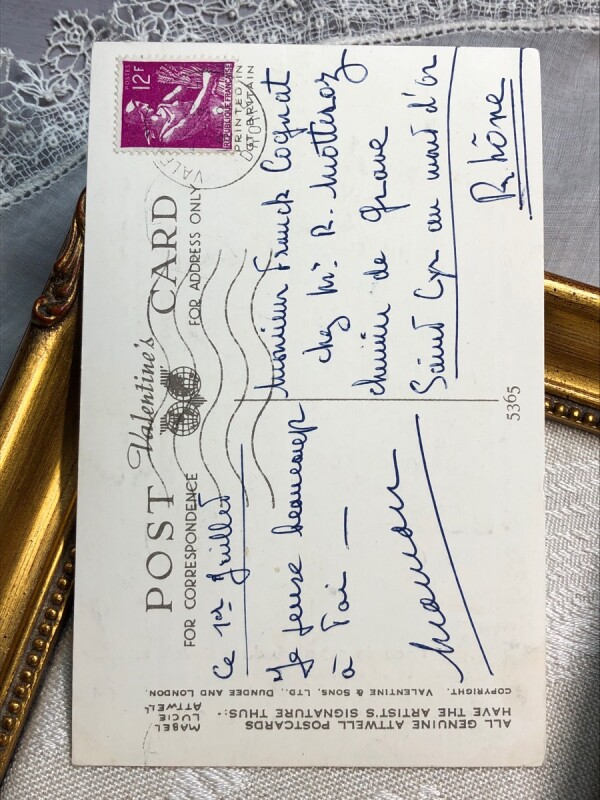 POST Valentine's CARD
FOR CORRESPONDENCE
FOR ADDRESS ONLY
PRINTED IN
GT BRITAIN
12F
POSTES
REPUBLIQUE FRANÇAISE
Ce 1er Juillet
Je pense beaucoup
à Toi —
Maman
Monsieur Franck Cognat
chez Mr R. Motteroz
chemin de grave
Saint Cyr au mont d'or
Rhône
5365
MABEL
LUCIE
ATTWELL
ALL GENUINE ATTWELL POSTCARDS
HAVE THE ARTIST'S SIGNATURE THUS:-
COPYRIGHT. VALENTINE & SONS, LTD., DUNDEE AND LONDON.